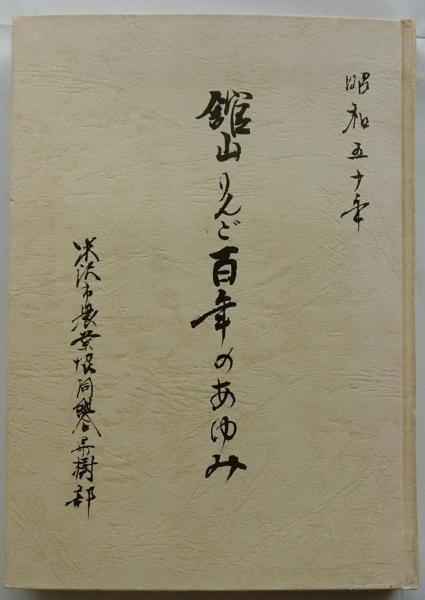 昭和五十年
舘山りんご百年のあゆみ
米沢市農業協同組合果樹部